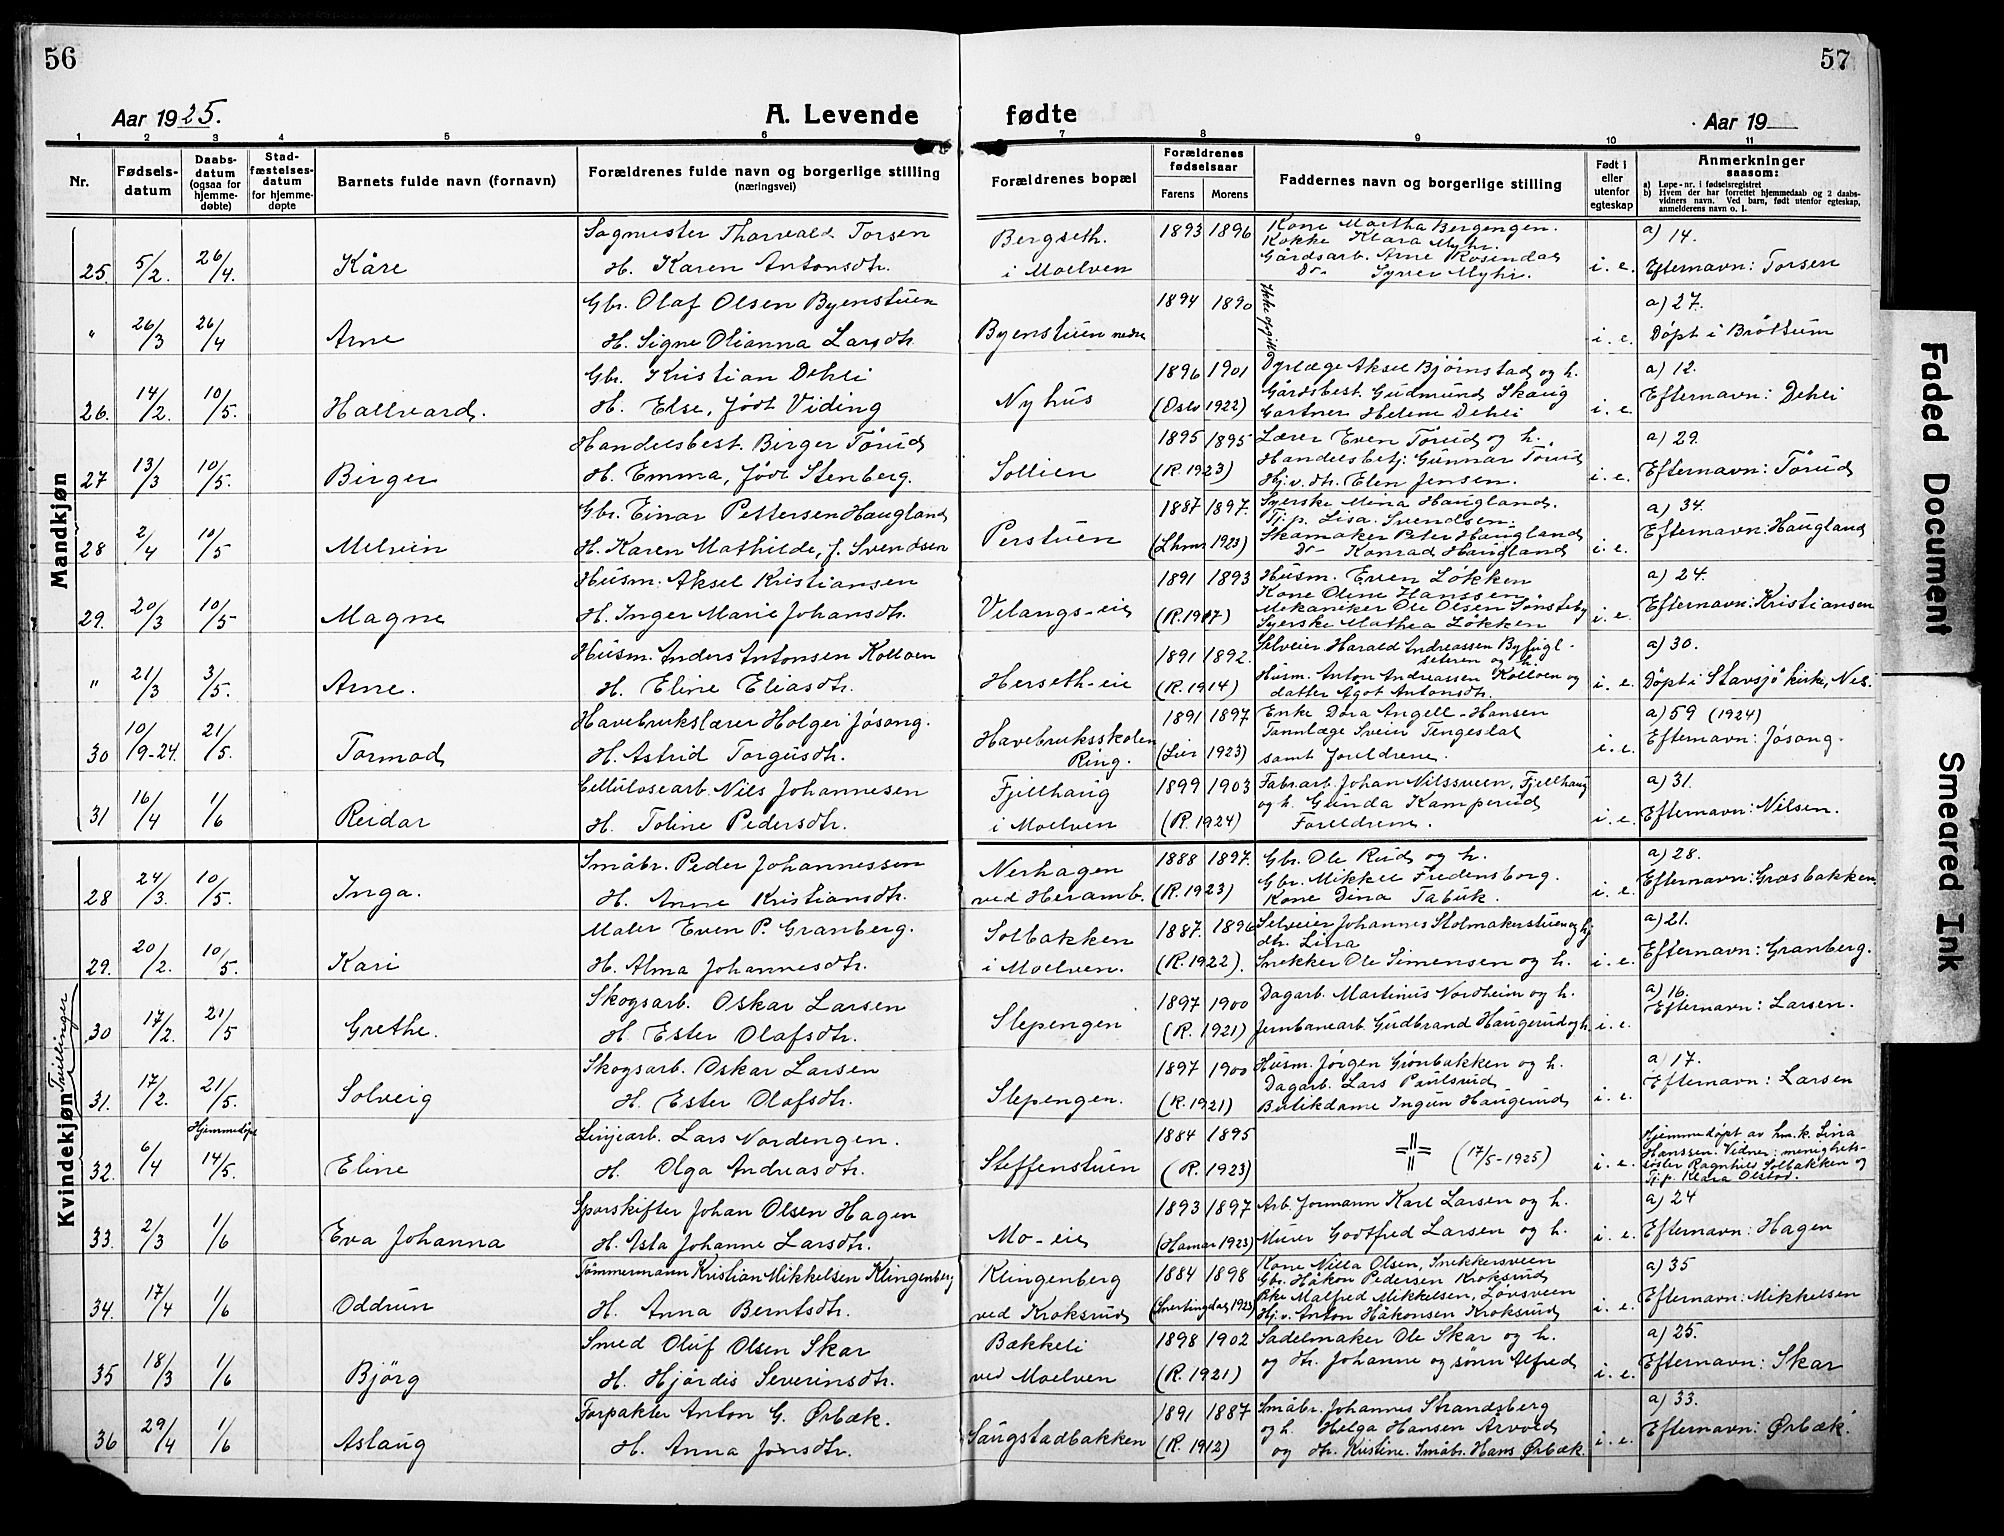 56
Aar 1925.
A. Levende
1 2 3 4 5 6
Nr.
Fødsels-
datum
Daabs-
datum
(ogsaa for
hjemme-
døbte)
Stad-
fæstelses-
datum
for hjemme-
døpte
Barnets fulde navn (fornavn)
Forældrenes fulde navn og borgerlige stilling
(næringsvei)
57
fødte
Aar 19
7 8 9 10 11
Forældrenes bopæl
Forældrenes
fødselsaar
Farens Morens
Faddernes navn og borgerlige stilling
Født i
eller
utenfor
egteskap
Anmerkninger
saasom:
a) Løpe-nr. i fødselsregistret
b) Hvem der har forrettet hjemmedaab og 2 daabs-
vidners navn. Ved barn, født utenfor egteskap,
anmelderens navn o. l.
Mandkjøn
25 5/2. 26/4. Kåre
Sagmester Thorvald Torsen
H. Karen Antonsdtr.
Bergseth.
i Moelven
1893 1896
Kone Martha Bergengen.
Kokke Klara Myhr.
Gårdsarb. Arne Rosendal
Do- Syver Myhr.
i. e.
a) 14.
Efternavn: Torsen
" 26/3 26/4 Arne
Gbr. Olaf Olsen Byenstuen
H. Signe Olianna Larsdtr.
Byenstuen nedre
1894 1890
Ikke opgitt
i. e.
a) 27.
Døpt i Brøttum
26. 14/2. 10/5. Hallvard.
Gbr. Kristian Dehli
H. Else, født Viding
Nyhus
1896 1901
(Oslo 1922)
Dyrlæge Aksel Bjørnstad og h.
Gårdsbest. Gudmund Skaug
Gartner Helene Dehli
i. e.
a) 12.
Efternavn: Dehli
27 13/3 10/5. Birger
Handelsbest. Birger Tørud
H. Emma, født Stenberg.
Sollien
1895 1895
(R. 1923)
Lærer Even Tørud og h.
Handelsbetj. Gunnar Tørud
Hj.v. dtr. Elen Jensen.
i. e.
a) 29.
Efternavn: Tørud
28 2/4 10/5 Melvin
Gbr. Einar Pettersen Haugland
H. Karen Mathilde, f. Svendsen
Perstuen
1887 1897.
(Lhmr 1923)
Syerske Mina Haugland.
Tj.p. Lisa Svendsen.
Skomaker Peter Haugland
Do- Konrad Haugland
i. e.
a) 34.
Efternavn: Haugland
29. 20/3 10/5 Magne
Husm. Aksel Kristiansen
H. Inger Marie Johansdtr.
Velangs-eie
1891 1893
(R. 1917)
Husm. Even Løkken
Kone Oline Hanssen.
Mekaniker Ole Olsen Sønsteby
Syerske Mathea Løkken
i. e.
a) 24.
Efternavn: Kristiansen
" 21/3 3/5. Arne.
Husm. Anders Antonsen Kolloen
H. Eline Eliasdtr.
Herseth-eie
1891 1892.
(R. 1914)
Selveier Harald Andreassen Byfugl-
seteren og h.
Husm. Anton Andreassen Kolloen og
datter Agot Antonsdtr.
i. e.
a) 30.
Døpt i Stavsjø kirke, Nes.
30 10/9-24. 21/5. Tormod
Havebrukslærer Holger Jøsang.
H. Astrid Torgusdtr.
Havebruksskolen
Ring.
1891 1897
(Lier 1923)
Enke Dora Angell-Hansen
Tannlæge Svein Tengesdal
samt foreldrene.
i. e.
a) 59 (1924)
Efternavn: Jøsang.
31 16/4 1/6 Reidar
Celluloscarb. Nils Johannesen
H. Toline Pedersdtr.
Fjellhaug
i Moelven
1899 1903
(R. 1924)
Fabrarb. Johan Nilssveen, Fjellhaug
og h. Gunda Kamperud
Foreldrene.
i. e.
a) 31.
Efternavn: Nilsen.
Kvindekjøn
28 24/3. 10/5. Inga.
Småbr. Peder Johannessen
H. Anne Kristiansdtr.
Nerhagen
ved Heramb.
1888 1897.
(R. 1923)
Gbr. Ole Rud og h.
Gbr. Mikkel Fredensborg.
Kone Dina Tabuk.
i. e.
a) 28.
Efternavn: Græsbakken
29. 20/2. 10/5. Kari
Maler Even P. Granberg.
H. Alma Johannesdtr.
Solbakken
i Moelven.
1887. 1896
(R. 1922).
Selveier Johannes Stolmakerstuen og h.
dtr. Lina
Snekker Ole Simensen og h.
i. e.
a) 21.
Efternavn: Granberg.
Tvillinger
30 17/2. 21/5 Grethe.
Skogsarb. Oskar Larsen
H. Ester Olafsdtr.
Slepengen
1897 1900
(R. 1921)
Dagarb. Martinus Nordheim og h.
Jernbanearb. Gudbrand Haugerud og h.
i. e.
a) 16.
Efternavn: Larsen.
31. 17/2. 21/5. Solveig
Skogsarb. Oskar Larsen
H. Ester Olafsdtr.
Slepengen.
1897 1900
(R. 1921)
Husm. Jørgen Grønbakken og h.
Dagarb. Lars Paulsrud
Butikdame Ingun Haugerud
i. e.
a) 17.
Efternavn: Larsen
32. 6/4 Hjemmedøpt 14/5. Eline
Linjearb. Lars Nordengen.
H. Olga Andreasdtr.
Steffenstuen
1884 1895
(R. 1923)
(17/5-1925)
i. e.
Hjemmedøpt av hm.k. Lina
Hanssen. Vidner: menighets-
søster Ragnhild Solbakken og
Tj.p. Klara Olstad.
33. 2/3 1/6 Eva Johanna
Sporskifter Johan Olsen Hagen
H. Asta Johanne Larsdtr.
Mo-eie
1893 1897
(Hamar 1923)
Arb.formann Karl Larsen og h.
Murer Godtfred Larsen og h.
i. e.
a) 24
Efternavn: Hagen
34. 17/4 1/6 Oddrun
Tømmermann Kristian Mikkelsen Klingenberg
H. Anna Berntsdtr.
Klingenberg
ved Kroksrud
1884 1898
(Snertingdal 1923)
Kone Nilla Olsen, Snekkersveen
Gbr. Håkon Pedersen Kroksrud
Pke Malfred Mikkelsen, Lønsveen
Hj.v. Anton Håkonsen Kroksrud
i. e.
a) 35
Efternavn: Mikkelsen
35 18/3 1/6 Bjørg
Smed Oluf Olsen Skar
H. Hjørdis Severinsdtr.
Bækkeli
ved Moelven
1898 1902
(R. 1921)
Sadelmaker Ole Skar og h.
og dtr. Johanne og sønn Alfred
i. e.
a) 25.
Efternavn: Skar
36 29/4 1/6 Aslaug
Forpakter Anton G. Ørbæk.
H. Anna Jønsdtr.
Saugstadbakken
1891 1887
(R. 1912)
Småbr. Johannes Strandsberg
og h. Helga Hansen Arvold
og dtr. Kristine. Småbr. Hans Ørbæk.
i. e.
a) 33.
Efternavn: Ørbæk.
Faded Document
Smeared Ink